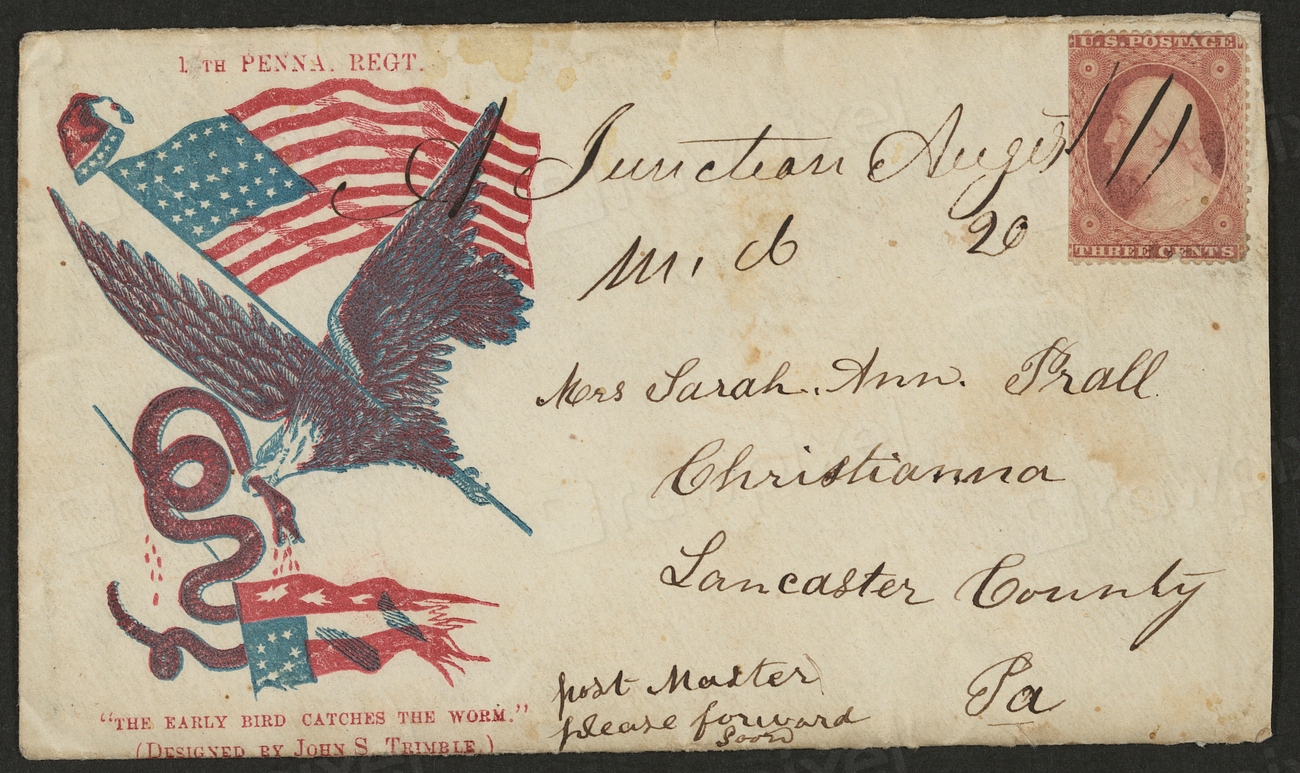 1 TH PENNA. REGT.
U.S. POSTAGE
THREE CENTS
A Junction August
M. d 20
Mrs Sarah. Ann. Prall
Christianna
Lancaster County
Pa
post Master
please forward
Soon
"THE EARLY BIRD CATCHES THE WORM."
(DESIGNED BY JOHN S. TRIMBLE.)